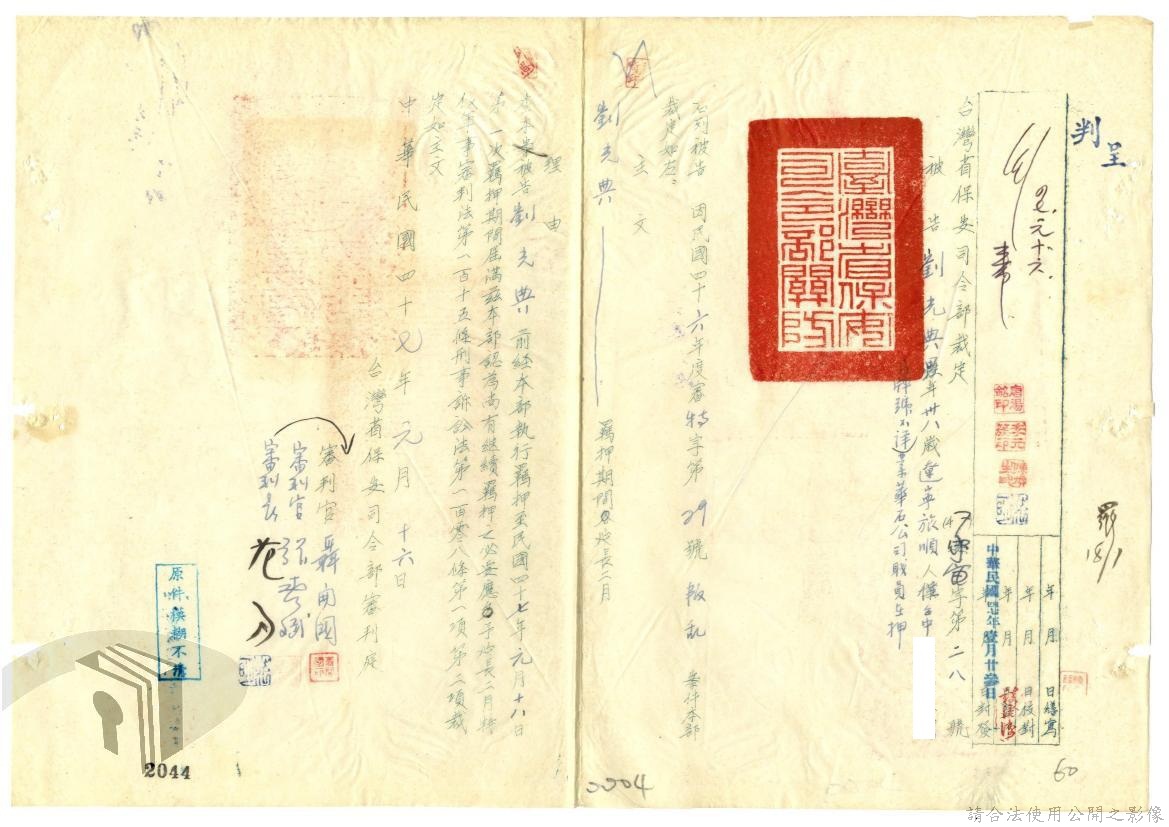 呈
判
元.十六.
18/1
年 月 日繕寫
年 月 日校對
年 月 日封發
中華民國四七年壹月廿叁日
台灣省保安司令部裁定
字第二八號
被告劉光典男年卅八歲遼寧旅順人住台中
門牌號不詳業華石公司職員在押
臺灣省保安司令部關防
右列被告因民國四十六年度審特字第29號叛乱案件本部
裁定如左:
主文
劉光典 羈押期間延長二月
理由
查本案被告劉光典前經本部執行羈押至民國四十七年元月十八日
第一次羈押期間屆滿茲本部認為尚有繼續羈押之必要應予延長二月特
依軍事審判法第一百十五條刑事訴訟法第一百零八條第一項第二項裁
定如主文
中華民國四十七年元月十六日
台灣省保安司令部審判庭
審判官聶開國
審判官
審判長
原件模糊不清
2044
60
請合法使用公開之影像